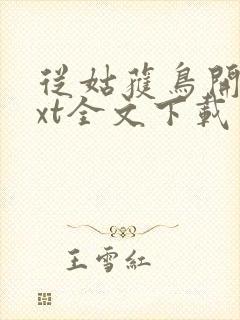 從姑蕪鳥開
xt全文下載
王雪紅